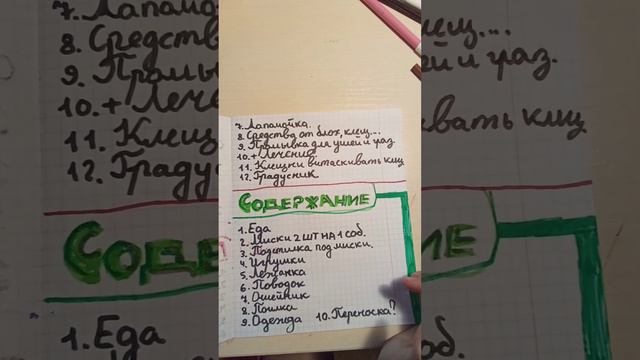 7. Лапамойка.
8. Средства от блох, клещ...
9. Промывка для ушей и глаз.
10. + Лечение
11. Клещи витаскивать клщ
12. Градусник
СОДЕРЖАНИЕ
1. Еда
2. Миски 2 ШТ НА 1 соб.
3. Подстилка под миски.
4. Игрушки
5. Лежанка
6. Поводок
7. Ошейник
8. Поилка
9. Одежда 10. Переноска?